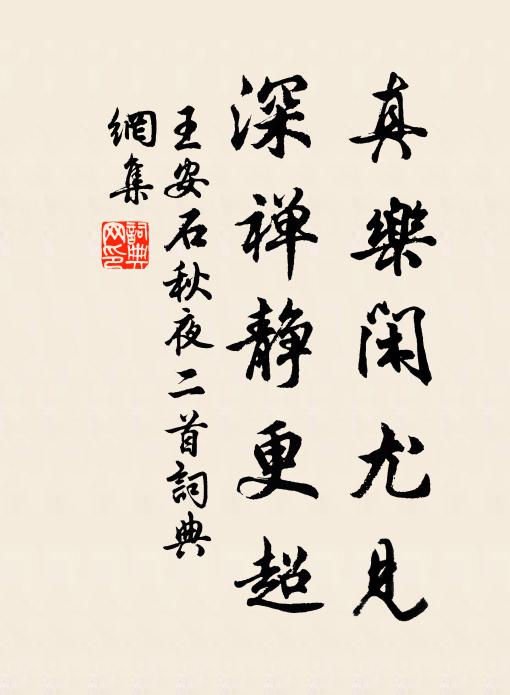 真樂閑尤見
深禅静更超
王安石秋夜二首詞典
網集
詞典
网印